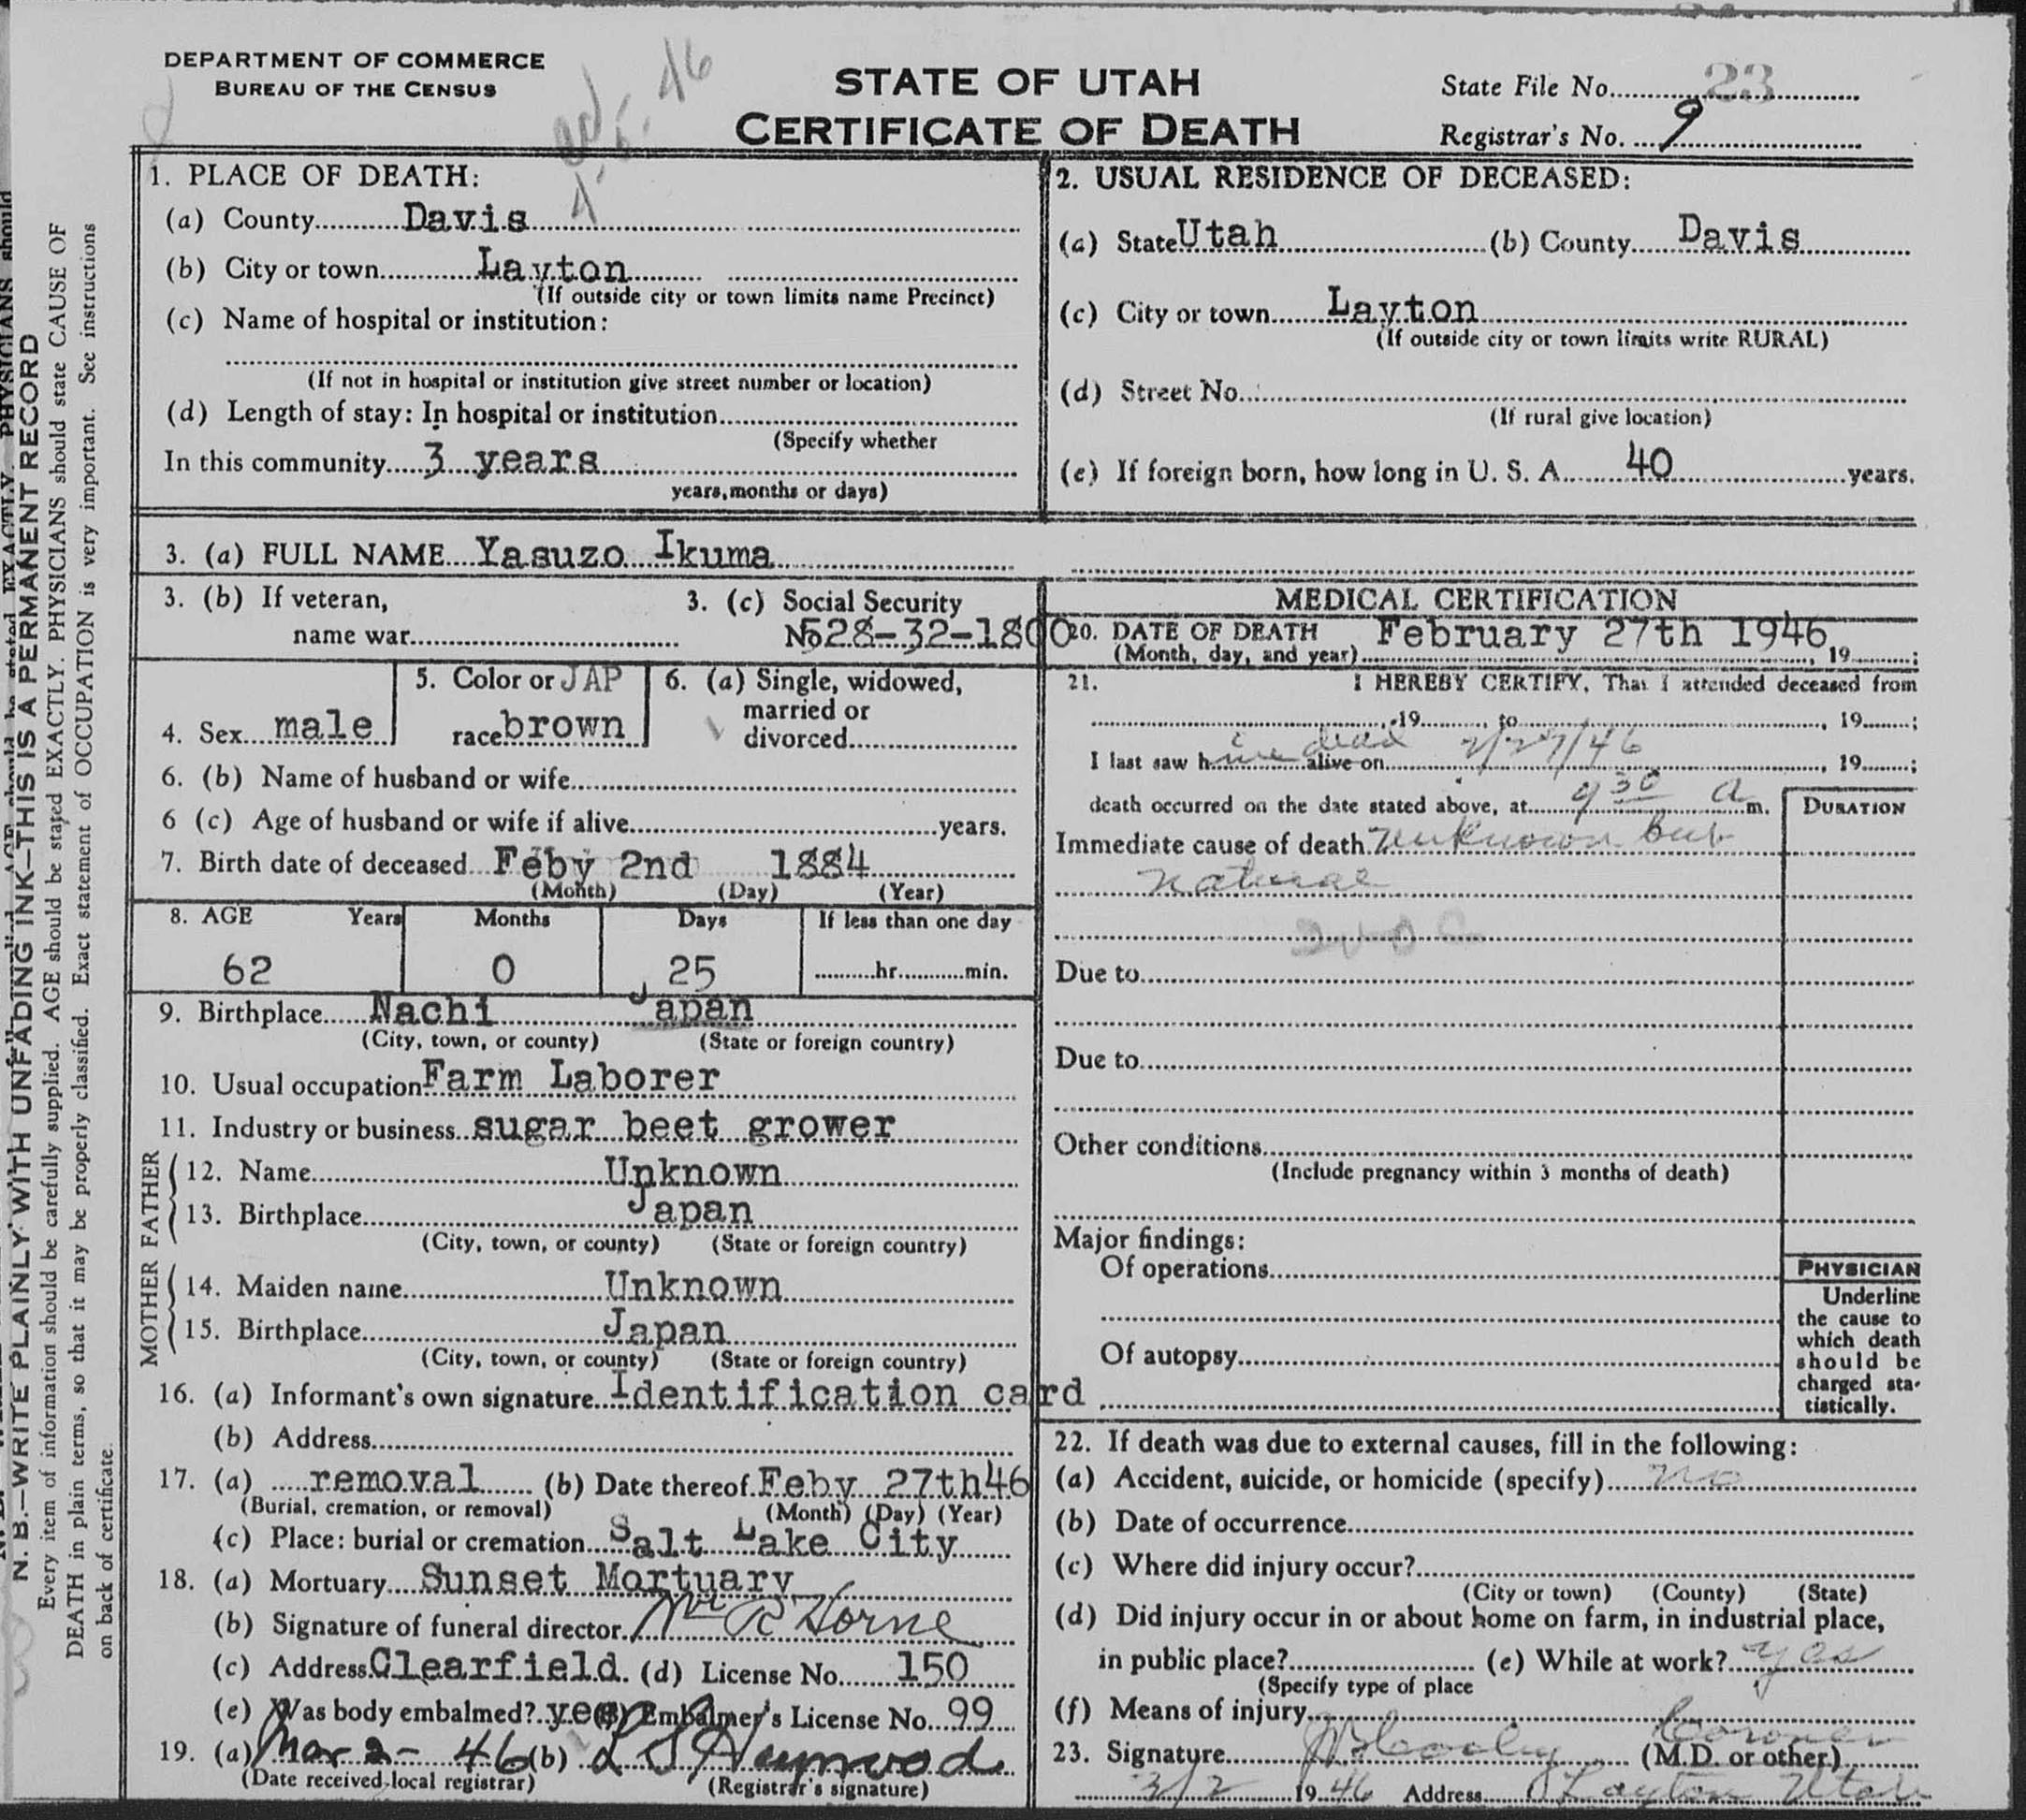 DEPARTMENT OF COMMERCE
BUREAU OF THE CENSUS
STATE OF UTAH
CERTIFICATE OF DEATH
State File No. 23
Registrar's No. 9
1. PLACE OF DEATH:
(a) County Davis
(b) City or town Layton
(If outside city or town limits name Precinct)
(c) Name of hospital or institution:
(If not in hospital or institution give street number or location)
(d) Length of stay: In hospital or institution
(Specify whether
In this community 3 years
years, months or days)
2. USUAL RESIDENCE OF DECEASED:
(a) State Utah (b) County Davis
(c) City or town Layton
(If outside city or town limits write RURAL)
(d) Street No.
(If rural give location)
(e) If foreign born, how long in U. S. A. 40 years.
3. (a) FULL NAME Yasuzo Ikuma
3. (b) If veteran,
name war
3. (c) Social Security
No 528-32-1800
4. Sex male
5. Color or JAP
race brown
6. (a) Single, widowed,
married or
divorced
6. (b) Name of husband or wife
6 (c) Age of husband or wife if alive years.
7. Birth date of deceased Feby 2nd 1884
(Month) (Day) (Year)
8. AGE Years Months Days If less than one day
62 0 25 hr. min.
9. Birthplace Nachi Japan
(City, town, or county) (State or foreign country)
10. Usual occupation Farm Laborer
11. Industry or business sugar beet grower
FATHER
12. Name Unknown
13. Birthplace Japan
(City, town, or county) (State or foreign country)
MOTHER
14. Maiden name Unknown
15. Birthplace Japan
(City, town, or county) (State or foreign country)
16. (a) Informant's own signature Identification card
(b) Address
17. (a) removal (b) Date thereof Feby 27th 46
(Burial, cremation, or removal) (Month) (Day) (Year)
(c) Place: burial or cremation Salt Lake City
18. (a) Mortuary Sunset Mortuary
(b) Signature of funeral director Wm R Horne
(c) Address Clearfield. (d) License No. 150
(e) Was body embalmed? yes (f) Embalmer's License No. 99
19. (a) Mar 2 - 46 (b)
(Date received local registrar) (Registrar's signature)
MEDICAL CERTIFICATION
20. DATE OF DEATH February 27th 1946
(Month, day, and year) , 19 ;
21. I HEREBY CERTIFY, That I attended deceased from
, 19 , to , 19 ;
I last saw him dead alive on 2/27/46 , 19 ;
death occurred on the date stated above, at 9 30 a m.
DURATION
Immediate cause of death Unknown but
natural
Due to
Due to
Other conditions
(Include pregnancy within 3 months of death)
Major findings:
Of operations
Of autopsy
PHYSICIAN
Underline
the cause to
which death
should be
charged sta-
tistically.
22. If death was due to external causes, fill in the following:
(a) Accident, suicide, or homicide (specify) no
(b) Date of occurrence
(c) Where did injury occur?
(City or town) (County) (State)
(d) Did injury occur in or about home on farm, in industrial place,
in public place? (e) While at work? yes
(Specify type of place
(f) Means of injury
23. Signature Coroner (M.D. or other)
3/2 19 46 Address Layton Utah
N. B.—WRITE PLAINLY WITH UNFADING INK—THIS IS A PERMANENT RECORD
Every item of information should be carefully supplied. AGE should be stated EXACTLY. PHYSICIANS should state CAUSE OF
DEATH in plain terms, so that it may be properly classified. Exact statement of OCCUPATION is very important. See instructions
on back of certificate.